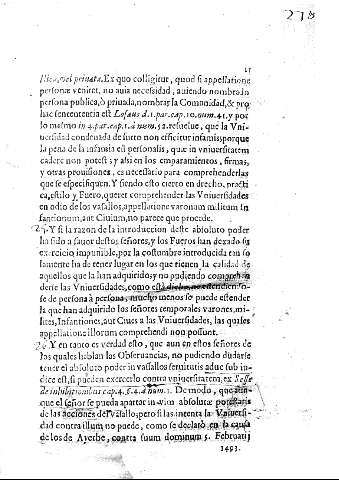 278
15
blica, vel privata. Ex quo colligitur, quod si appellatione
personæ veniret, no auia necessidad, auiendo nombrado
persona publica, ò priuada, nombrar la Comunidad, & pro
hac sententia est Losaus d. 1. par. cap. 10. num. 41. y por
lo mesmo in 4. par. cap. 1. à num. 52. resuelue, que la Vni-
uersidad condenada de furto non efficitur infamis, porque
la pena de la infamia est personalis, quæ in vniuersitatem
cadere non potest; y assi en los emparamientos, firmas,
y otras prouisiones, es necessario para comprehenderlas
que se especifiquen. Y siendo esto cierto en derecho, practi
ca, estilo, y Fuero, querer comprehender las Vniuersidades
en odio de los vasallos, appellatione varonum militum in
fantionum, aut Ciuium, no parece que procede.
25 Y si la razon de la introduccion deste absoluto poder
ha sido a fauor destos señores, y los Fueros han dexado su
exercicio impunible, por la costumbre introducida tan so
lamente ha de tener lugar en los que tienen la calidad de
aquellos que la han adquirido; y no pudiendo comprehen
derse las Vniuersidades, como està dicho, no estendiendo-
se de persona à persona, mucho menos se puede estender
la que han adquirido los señores temporales varones, mi-
lites, Infantiones, aut Ciues a las Vniuersidades, las quales
appellatione illorum comprehendi non possunt.
26 Y en tanto es verdad esto, que aun en estos señores de
los quales hablan las Obseruancias, no pudiendo dudarse
tener el absoluto poder in vasallos seruitutis aduc sub iu-
dice est, si pueden exercerlo contra vniuersitatem, ex Sesse
de inhibitionibus cap. 4. §. 4. à num. 1. De modo, que aun-
que el señor se pueda apartar in vim absolutæ potestatis
de las acciones del vasallo; pero si las intenta la Vniuersi-
dad contra illum no puede, como se declarò en la causa
de los de Ayerbe, contra suum dominum 5. Februarij
1493.